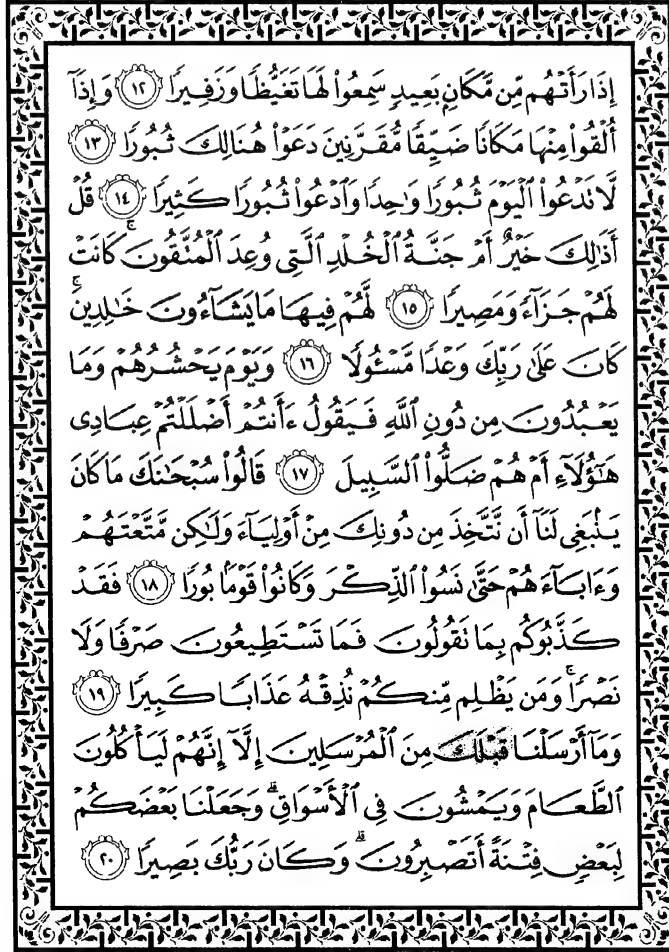 إِذَا رَأَتْهُم مِّن مَّكَانٍ بَعِيدٍ سَمِعُوا۟ لَهَا تَغَيُّظًا وَزَفِيرًا ١٢ وَإِذَآ
أُلْقُوا۟ مِنْهَا مَكَانًا ضَيِّقًا مُّقَرَّنِينَ دَعَوْا۟ هُنَالِكَ ثُبُورًا ١٣
لَّا تَدْعُوا۟ ٱلْيَوْمَ ثُبُورًا وَٰحِدًا وَٱدْعُوا۟ ثُبُورًا كَثِيرًا ١٤ قُلْ
أَذَٰلِكَ خَيْرٌ أَمْ جَنَّةُ ٱلْخُلْدِ ٱلَّتِى وُعِدَ ٱلْمُتَّقُونَ ۚ كَانَتْ
لَهُمْ جَزَآءً وَمَصِيرًا ١٥ لَّهُمْ فِيهَا مَا يَشَآءُونَ خَٰلِدِينَ ۚ
كَانَ عَلَىٰ رَبِّكَ وَعْدًا مَّسْـُٔولًا ١٦ وَيَوْمَ يَحْشُرُهُمْ وَمَا
يَعْبُدُونَ مِن دُونِ ٱللَّهِ فَيَقُولُ ءَأَنتُمْ أَضْلَلْتُمْ عِبَادِى
هَٰٓؤُلَآءِ أَمْ هُمْ ضَلُّوا۟ ٱلسَّبِيلَ ١٧ قَالُوا۟ سُبْحَٰنَكَ مَا كَانَ
يَنۢبَغِى لَنَآ أَن نَّتَّخِذَ مِن دُونِكَ مِنْ أَوْلِيَآءَ وَلَٰكِن مَّتَّعْتَهُمْ
وَءَابَآءَهُمْ حَتَّىٰ نَسُوا۟ ٱلذِّكْرَ وَكَانُوا۟ قَوْمًۢا بُورًا ١٨ فَقَدْ
كَذَّبُوكُم بِمَا تَقُولُونَ فَمَا تَسْتَطِيعُونَ صَرْفًا وَلَا
نَصْرًا ۚ وَمَن يَظْلِم مِّنكُمْ نُذِقْهُ عَذَابًا كَبِيرًا ١٩
وَمَآ أَرْسَلْنَا قَبْلَكَ مِنَ ٱلْمُرْسَلِينَ إِلَّآ إِنَّهُمْ لَيَأْكُلُونَ
ٱلطَّعَامَ وَيَمْشُونَ فِى ٱلْأَسْوَاقِ ۗ وَجَعَلْنَا بَعْضَكُمْ
لِبَعْضٍ فِتْنَةً أَتَصْبِرُونَ ۗ وَكَانَ رَبُّكَ بَصِيرًا ٢٠